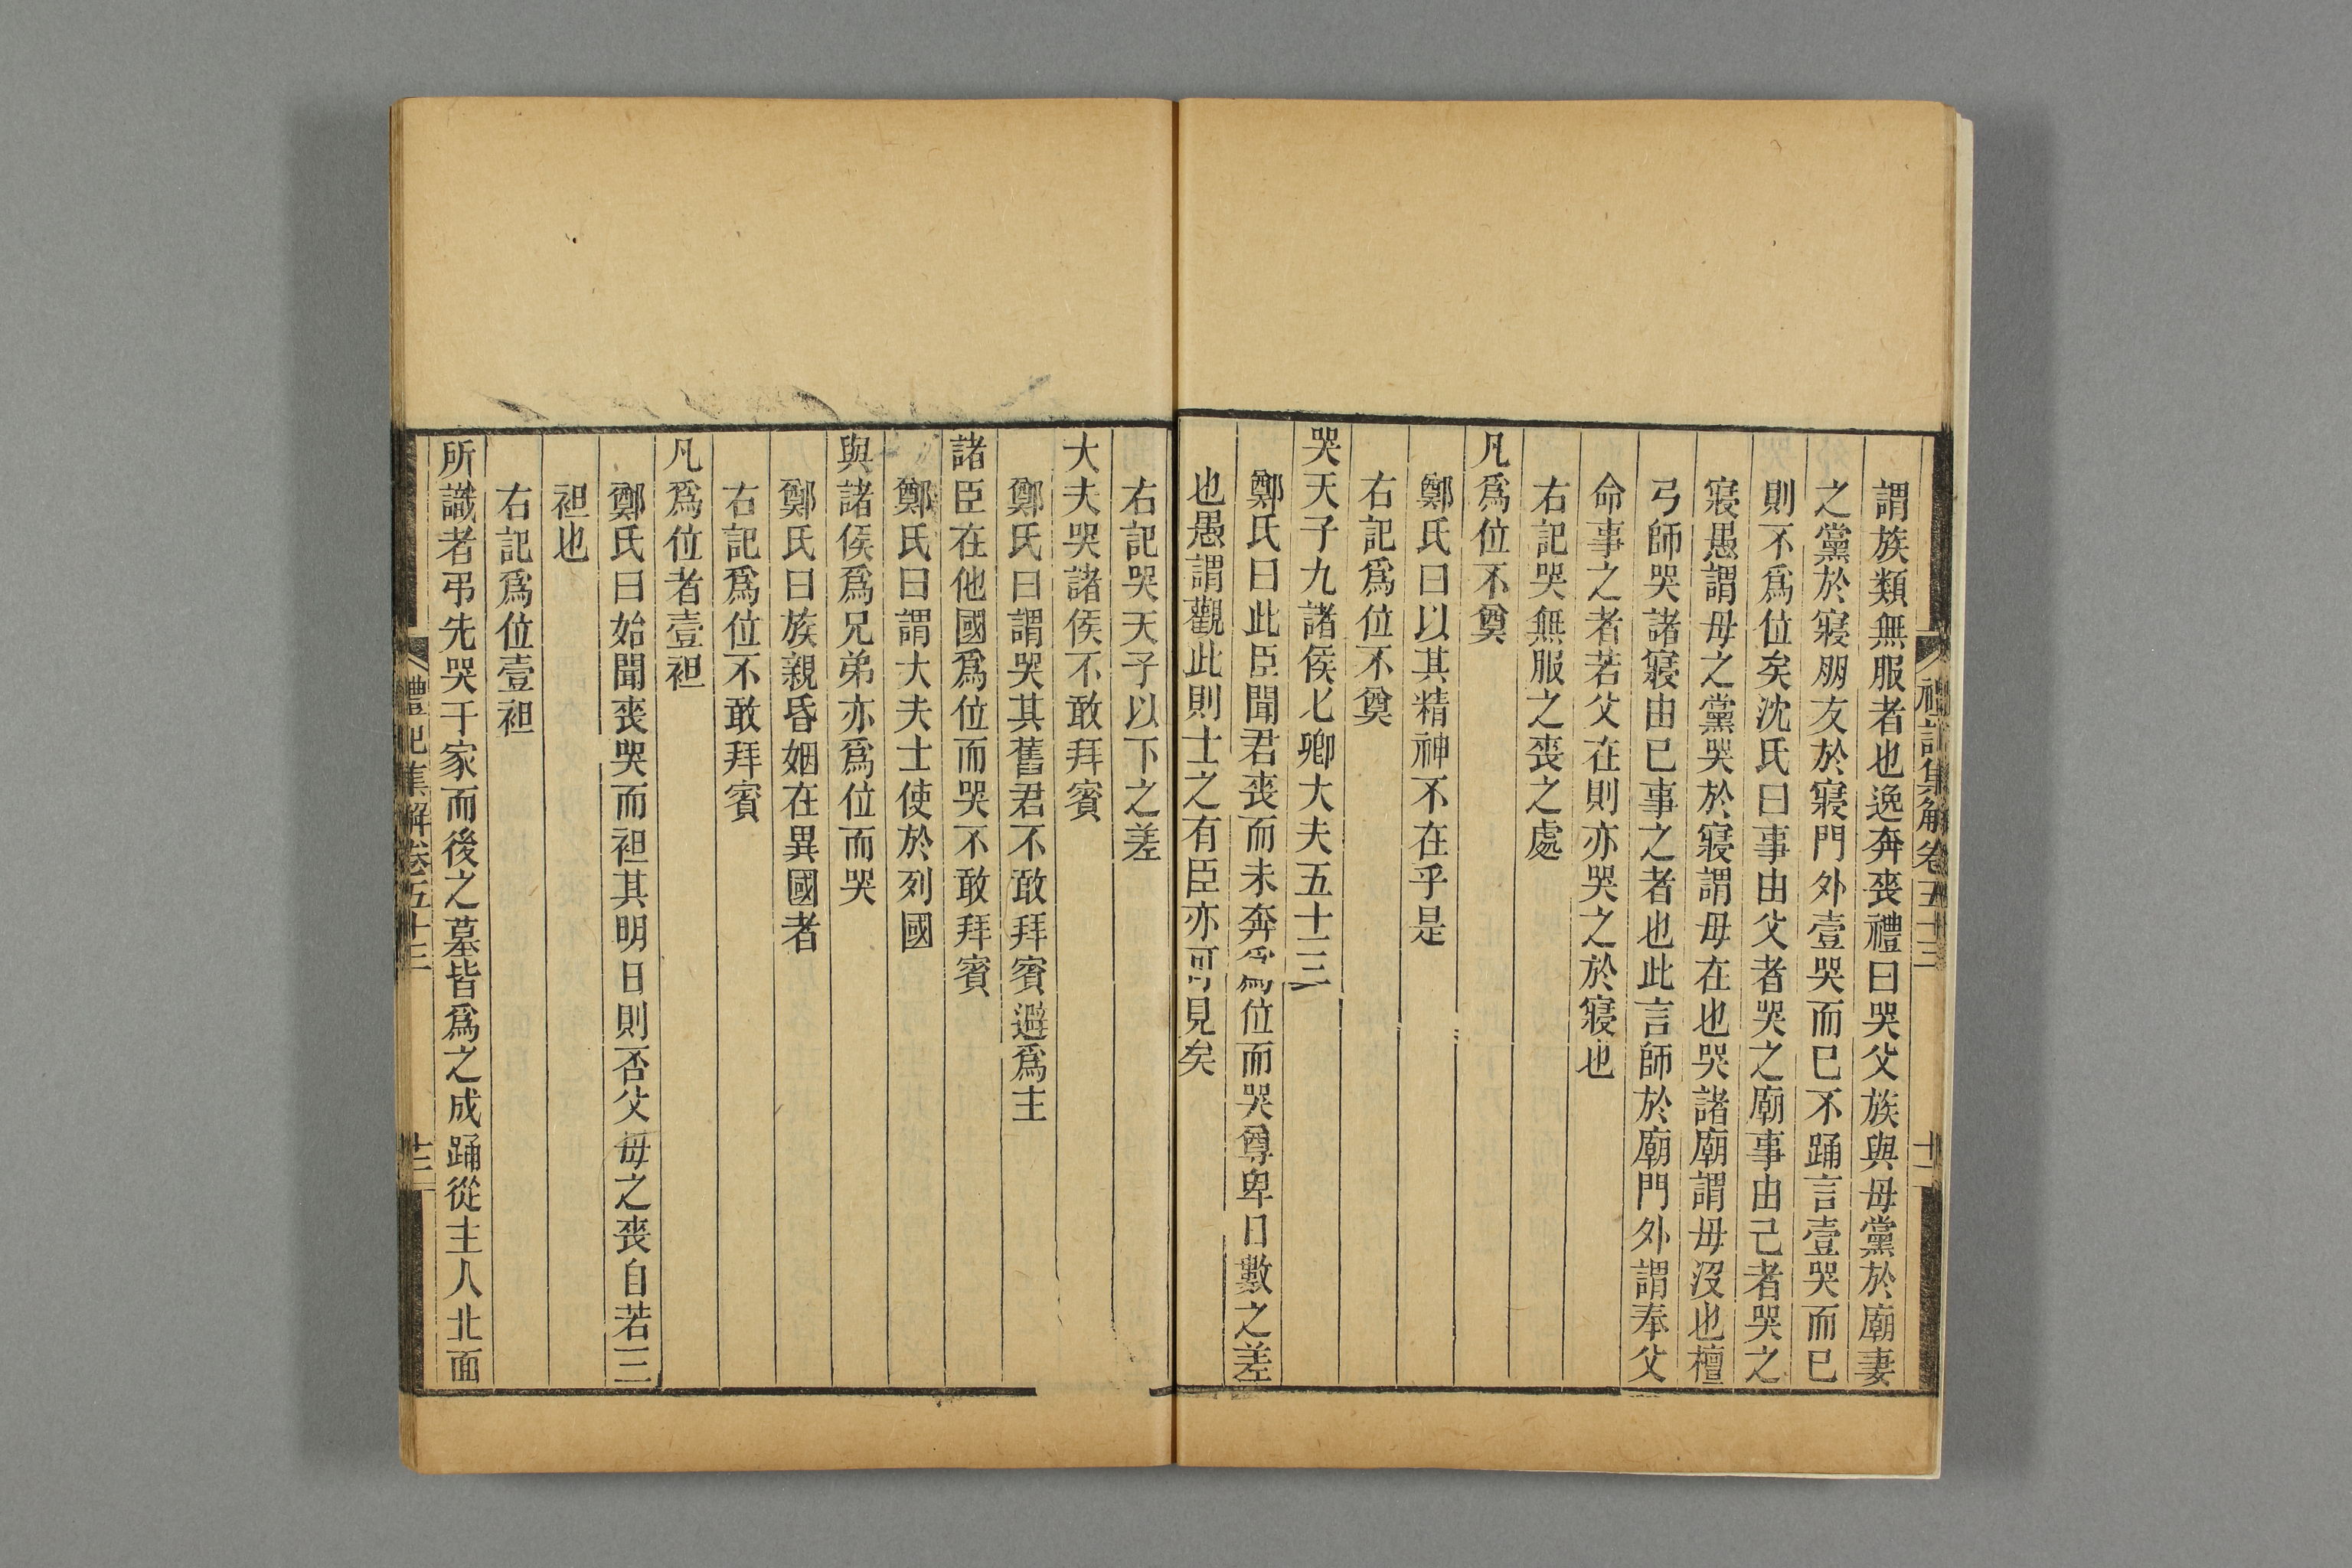 禮記集解卷五十三
十二
謂族類無服者也逸奔喪禮曰哭父族與母黨於廟妻
之黨於寢朋友於寢門外壹哭而已不踊言壹哭而已
則不爲位矣沈氏曰事由父者哭之廟事由己者哭之
寢愚謂母之黨哭於寢謂母在也哭諸廟謂母沒也檀
弓師哭諸寢由已事之者也此言師於廟門外謂奉父
命事之者若父在則亦哭之於寢也
右記哭無服之喪之處
凡爲位不奠
鄭氏曰以其精神不在乎是
右記爲位不奠
哭天子九諸侯七卿大夫五士三
鄭氏曰此臣聞君喪而未奔爲位而哭尊卑日數之差
也愚謂觀此則士之有臣亦可見矣
右記哭天子以下之差
大夫哭諸侯不敢拜賓
鄭氏曰謂哭其舊君不敢拜賓避爲主
諸臣在他國爲位而哭不敢拜賓
鄭氏曰謂大夫士使於列國
與諸侯爲兄弟亦爲位而哭
鄭氏曰族親昏姻在異國者
右記爲位不敢拜賓
凡爲位者壹袒
鄭氏曰始聞喪哭而袒其明日則否父母之喪自若三
袒也
右記爲位壹袒
所識者弔先哭于家而後之墓皆爲之成踊從主人北面
禮記集解卷五十三
十三